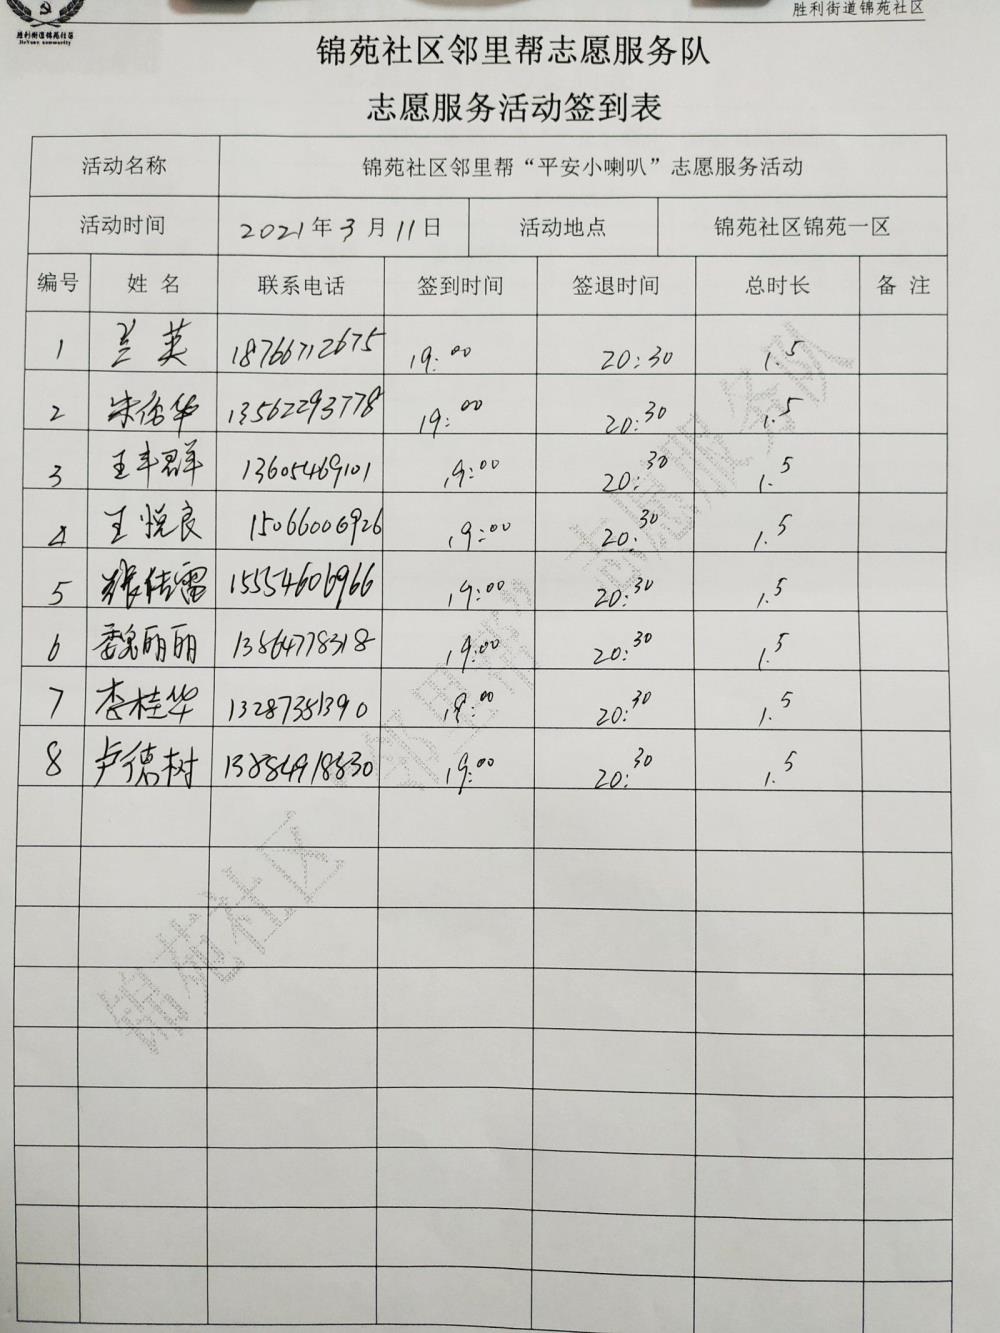 胜利街道锦苑社区
胜利街道锦苑社区
锦苑社区邻里帮志愿服务队
志愿服务活动签到表
活动名称 锦苑社区邻里帮“平安小喇叭”志愿服务活动
活动时间 2021年3月11日 活动地点 锦苑社区锦苑一区
编号 姓 名 联系电话 签到时间 签退时间 总时长 备 注
1 兰英 18766712675 19:00 20:30 1.5
2 13562293778 19:00 20:30 1.5
3 王丰群 13605469101 19:00 20:30 1.5
4 王悦良 15066006926 19:00 20:30 1.5
5 15554606966 19:00 20:30 1.5
6 魏丽丽 13864778318 19:00 20:30 1.5
7 李桂华 13287351390 19:00 20:30 1.5
8 卢德树 13854918830 19:00 20:30 1.5
锦苑社区“邻里帮”志愿服务队